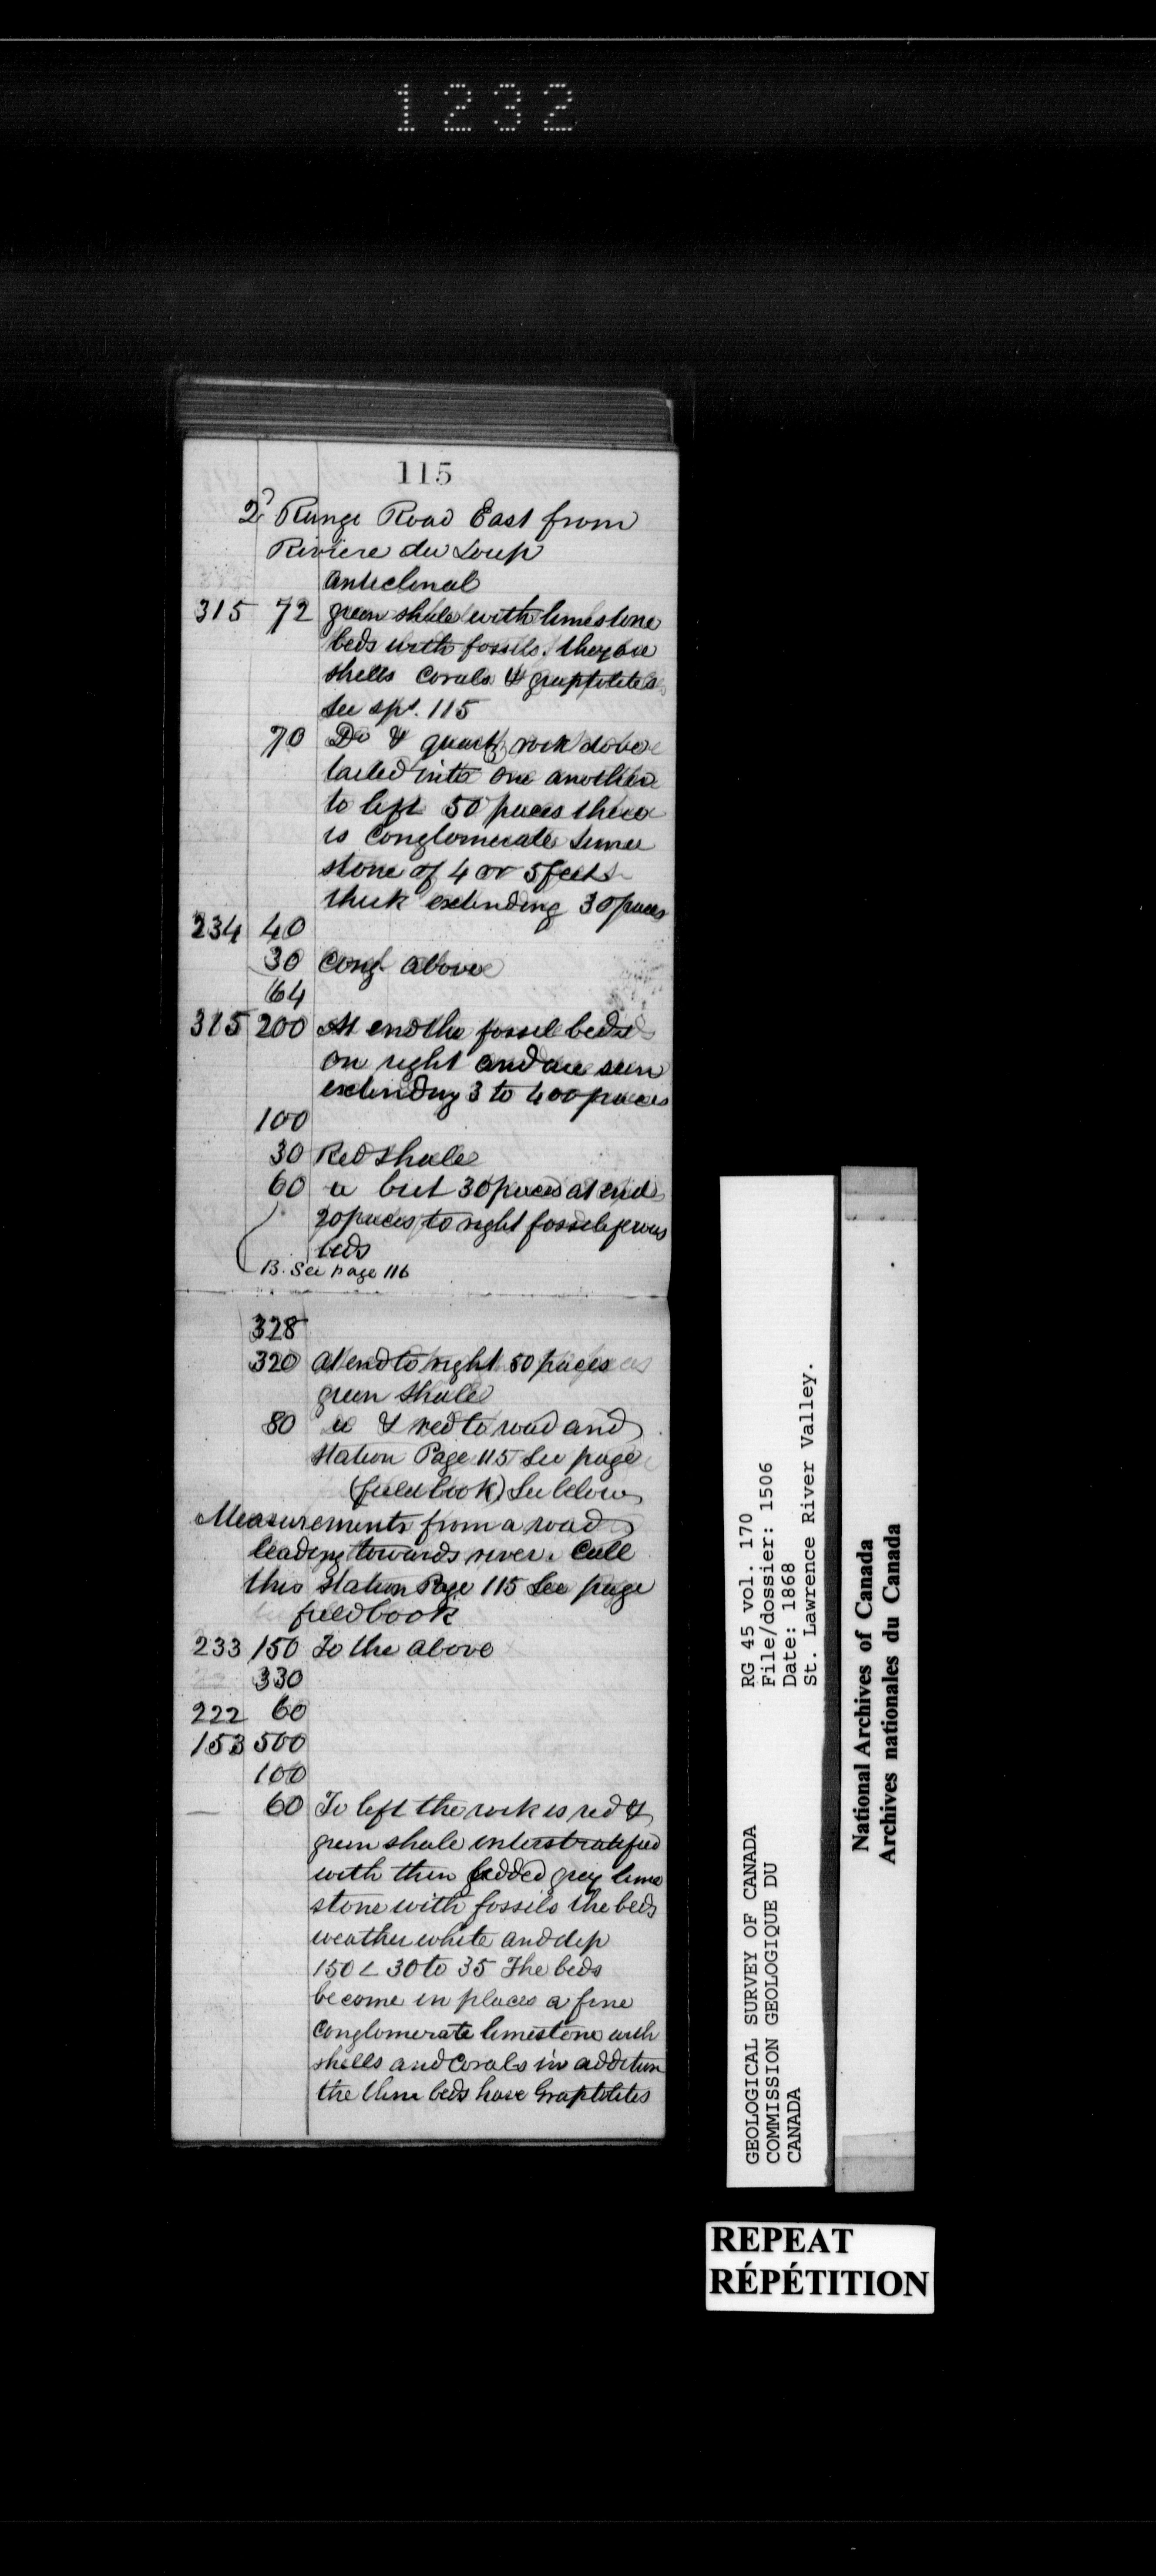 1232
115
2d Range Road East from
Riviere du Loup
Anticlinal
315 72 green shale with limestone
beds with fossils. they are
shells Corals & graptolites
See spt. 115
70 Do & quartz rock dove
tailed into one another
to left 50 paces there
is Conglomerate Lime
stone of 4 or 5 feet
thick extending 30 paces
234 40
30 Congl above
64
315 200 At end the fossil beds
on right and are seen
extending 3 to 400 paces
100
30 Red Shale
60 " but 30 paces at end
20 paces to right fossiliferous
beds
B. See page 116
328
320 At end to right 50 paces
green Shale
80 " & red to road and
Station Page 115 See page
(field book) See below
Measurements from a road
leading towards river. Call
this Station Page 115 See page
field book
233 150 To the above
330
222 60
153 500
100
60 To left the rock is red &
green shale interstratified
with thin bedded grey lime
stone with fossils the beds
weather white and dip
150 < 30 to 35 The beds
become in places a fine
Conglomerate limestone with
shells and Corals in addition
the thin beds have Graptolites
RG 45 vol. 170
File/dossier: 1506
Date: 1868
St. Lawrence River Valley.
GEOLOGICAL SURVEY OF CANADA
COMMISSION GEOLOGIQUE DU
CANADA
National Archives of Canada
Archives nationales du Canada
REPEAT
RÉPÉTITION